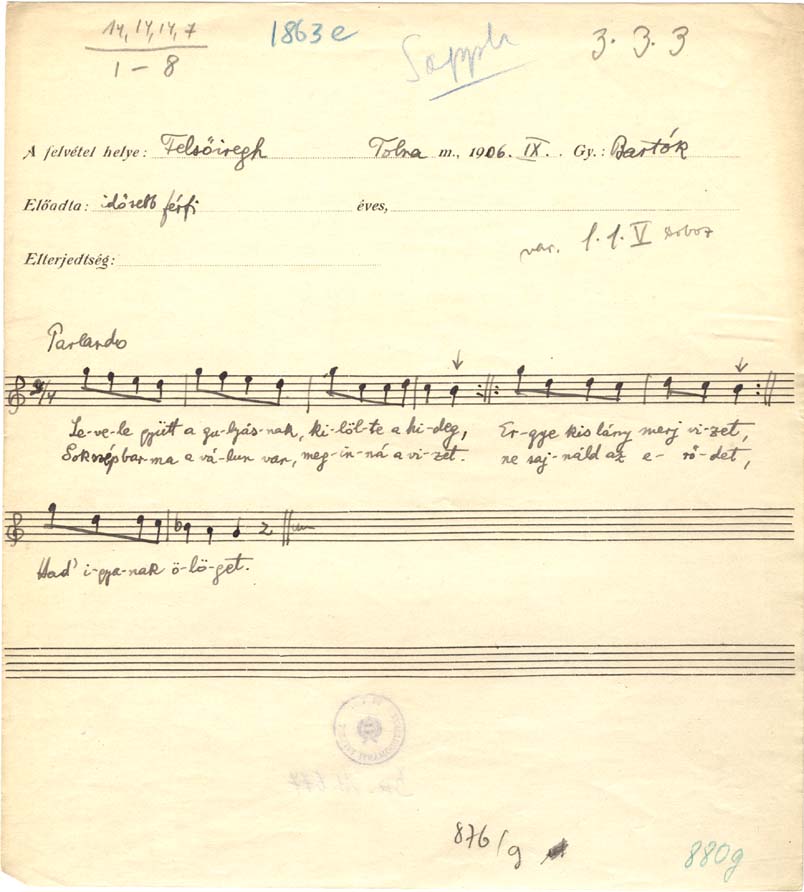 14, 14, 14, 7
1 - 8
1863e
Suppl
3. 3. 3
A felvétel helye: Felsőiregh Tolna m., 1906. IX. Gy.: Bartók
Előadta: idősebb férfi éves,
var. f. f. V
Elterjedtség:
Parlando
Le-ve-le gyütt a gu-lyás-nak, ki-löl-te a hi-deg, Er-gye kis lány merj vi-zet,
Sok szép bar-ma a vá-lun var, meg-in-ná a vi-zet. ne saj-náld az e-rő-det,
Had' i-gya-nak ö-lö-get.
876/g
880g